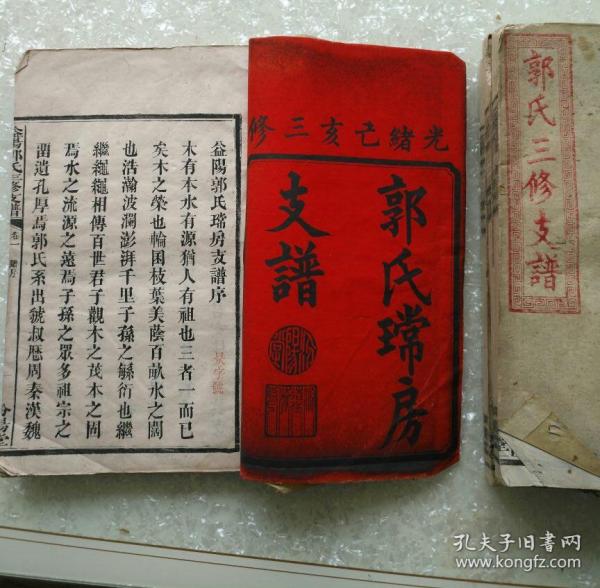 郭氏三修支譜
光緒己亥三修
郭氏瑺房
支譜
益陽郭氏瑺房支譜序
木有本水有源猶人有祖也三者一而已
矣木之榮也輪囷枝葉美蔭百畝水之闊
也浩瀚波瀾澎湃千里子孫之緜衍也繼
繼繩繩相傳百世君子觀木之茂木之固
焉水之流源之遠焉子孫之眾多祖宗之
菑遺孔厚焉郭氏系出虢叔歷周秦漢魏
益陽郭氏三修支譜
卷一
汾陽堂
孔夫子旧书网
www.kongfz.com